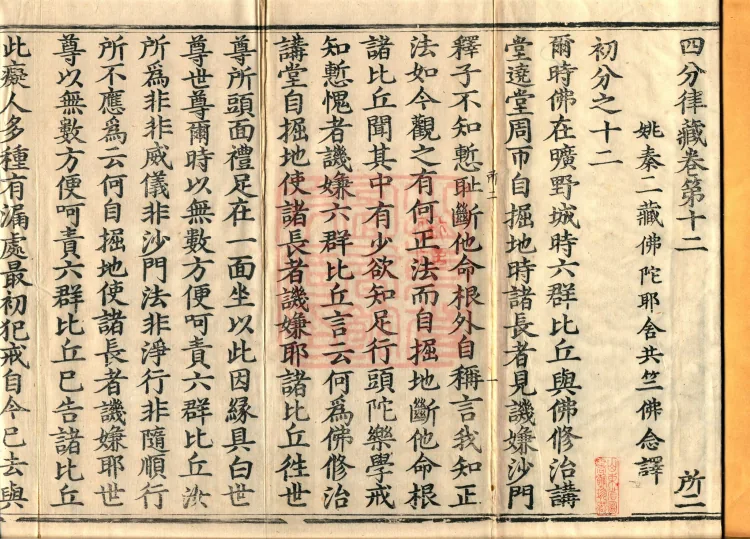 四分律藏卷第十二 所二
姚秦三藏佛陀耶舍共竺佛念譯
初分之十二
爾時佛在曠野城時六群比丘與佛修治講
堂遶堂周帀自掘地時諸長者見譏嫌沙門
釋子不知慙耻斷他命根外自稱言我知正
所二
法如今觀之有何正法而自掘地斷他命根
諸比丘聞其中有少欲知足行頭陀樂學戒
知慙愧者譏嫌六群比丘言云何為佛修治
講堂自掘地使諸長者譏嫌耶諸比丘徃世
尊所頭面禮足在一面坐以此因緣具白世
尊世尊爾時以無數方便呵責六群比丘汝
所為非非威儀非沙門法非淨行非隨順行
所不應為云何自掘地使諸長者譏嫌耶世
尊以無數方便呵責六群比丘已告諸比丘
此癡人多種有漏處最初犯戒自今已去與